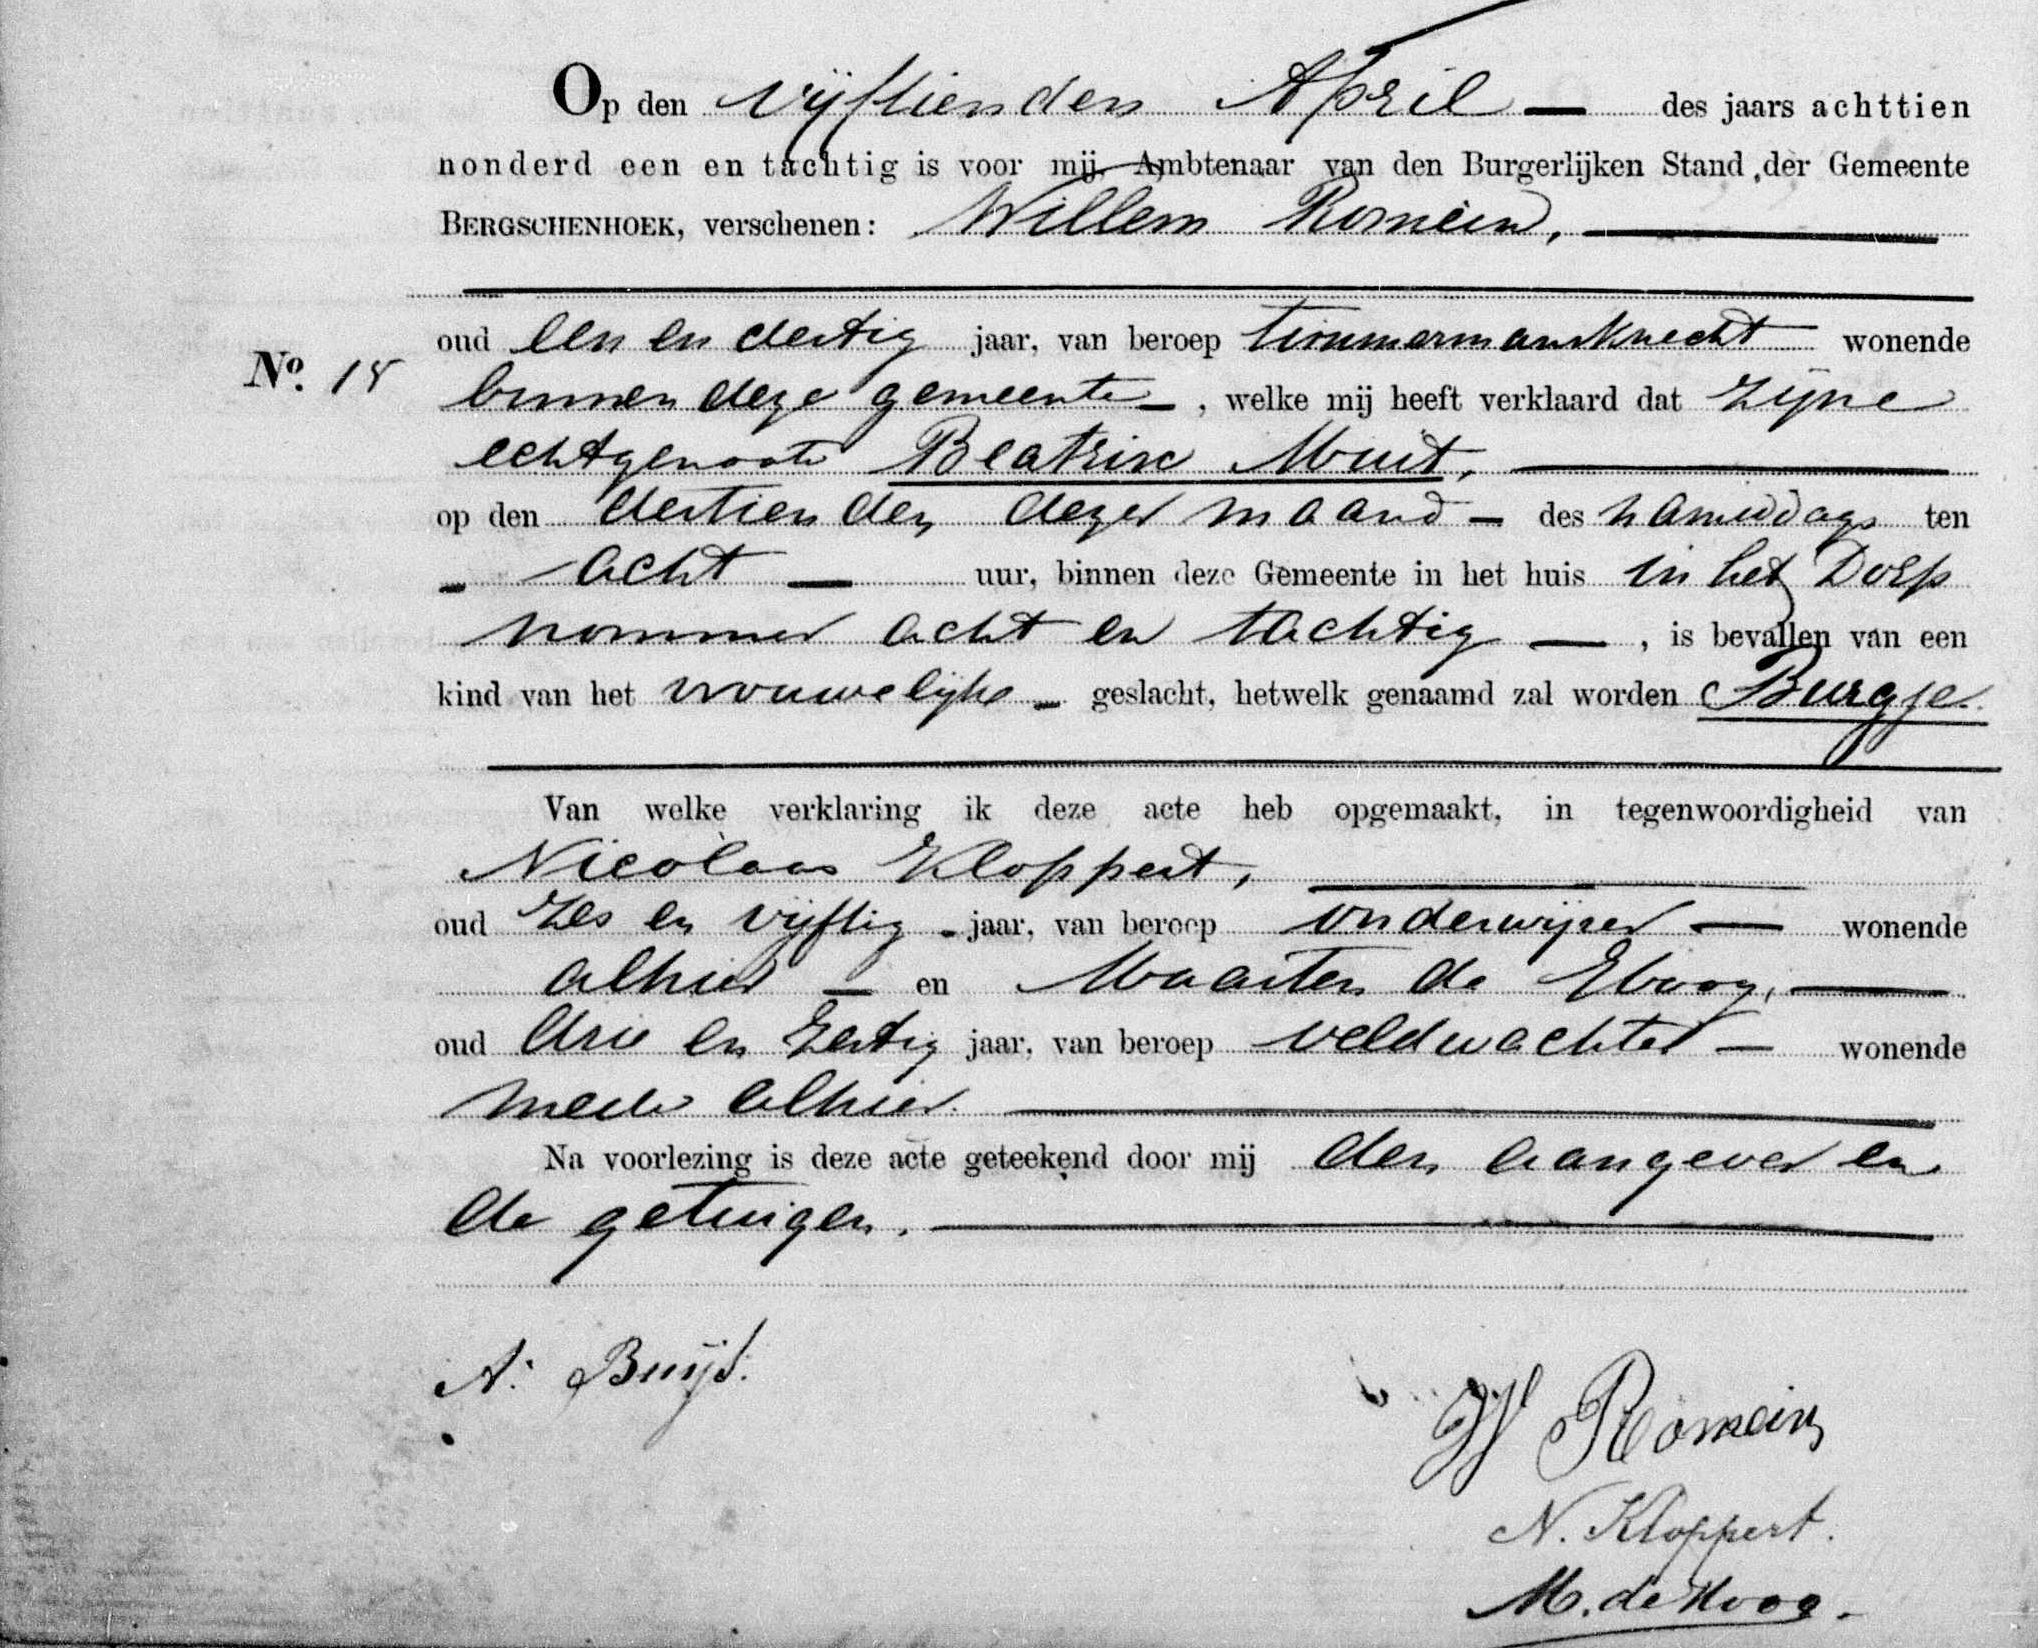 Op den vijftienden April — des jaars achttien
honderd een en tachtig is voor mij, Ambtenaar van den Burgerlijken Stand der Gemeente
BERGSCHENHOEK, verschenen: Willem Romein,
oud een en dertig jaar, van beroep timmermansknecht wonende
No. 18
binnen deze gemeente —, welke mij heeft verklaard dat zijne
echtgenoote Beatrix Muit,
op den dertienden dezer maand — des namiddags ten
— acht — uur, binnen deze Gemeente in het huis in het Dorp
nommer acht en tachtig —, is bevallen van een
kind van het vrouwelijke — geslacht, hetwelk genaamd zal worden Burgje.
Van welke verklaring ik deze acte heb opgemaakt, in tegenwoordigheid van
Nicolaas Kloppert,
oud zes en vijftig - jaar, van beroep onderwijzer — wonende
alhier — en Maarten de Hoog,
oud drie en zestig jaar, van beroep veldwachter — wonende
mede alhier.
Na voorlezing is deze acte geteekend door mij den aangever en
de getuigen.
A. Buijs.
W Romein
N. Kloppert.
M. de Hoog.